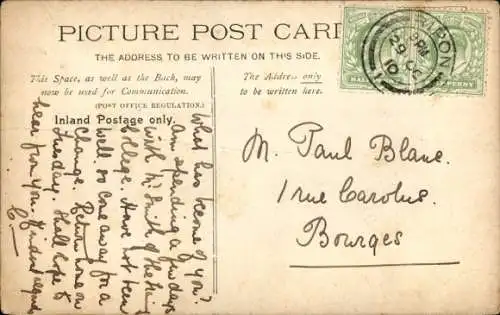 PICTURE POST CARD
THE ADDRESS TO BE WRITTEN ON THIS SIDE.
This Space, as well as the Back, may
now be used for Communication.
(POST OFFICE REGULATION.)
Inland Postage only.
The Address only
to be written here.
RIPON
OC 29
10
HALF PENNY
What has become of you?
Am spending a few days
with Mr Smith of the Training
College. Have not been
well so came away for a
change. Return home on
Tuesday. Shall hope to
hear from you. Kindest regards
C.
M. Paul Blanc.
1 rue Carolus.
Bourges